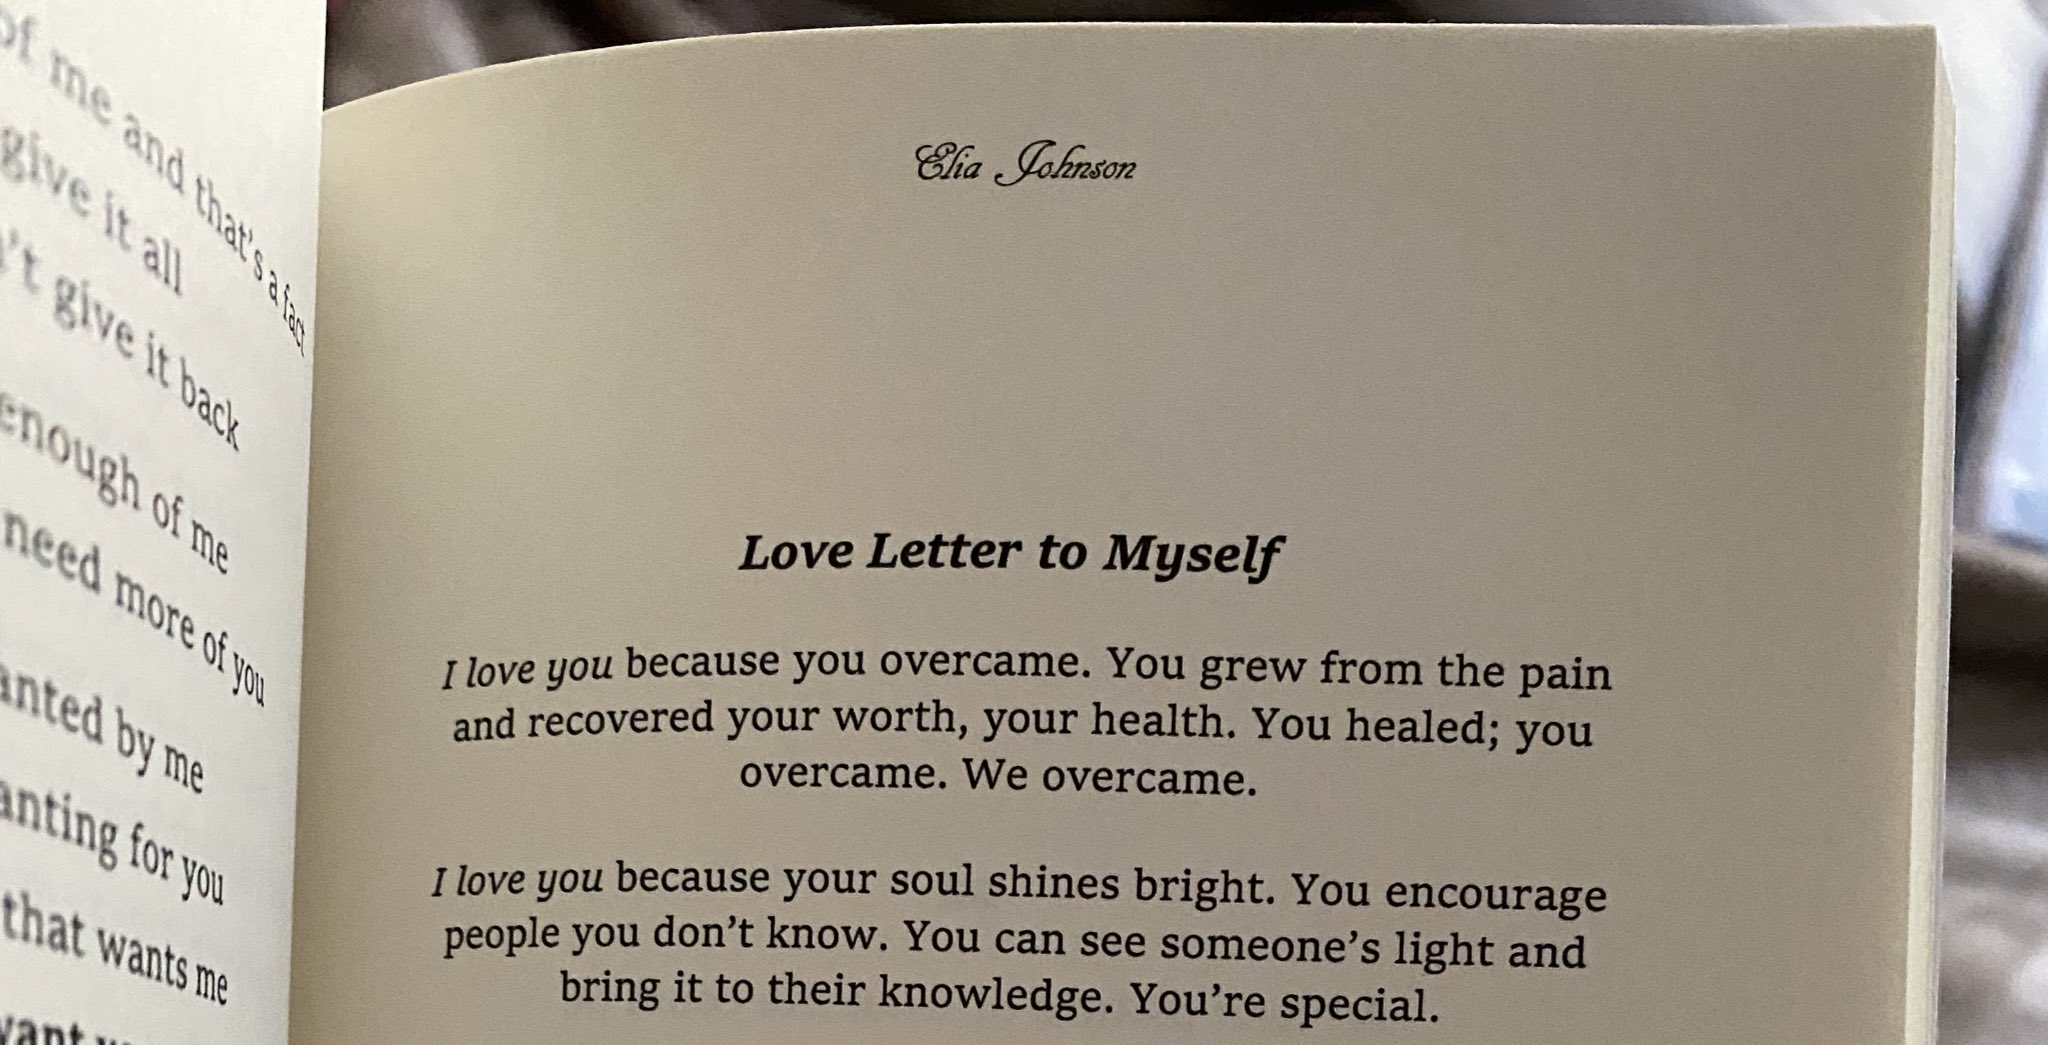 of me and that's a fact
give it all
't give it back
enough of me
need more of you
anted by me
anting for you
that wants me
Elia Johnson
Love Letter to Myself
I love you because you overcame. You grew from the pain
and recovered your worth, your health. You healed; you
overcame. We overcame.
I love you because your soul shines bright. You encourage
people you don’t know. You can see someone’s light and
bring it to their knowledge. You’re special.